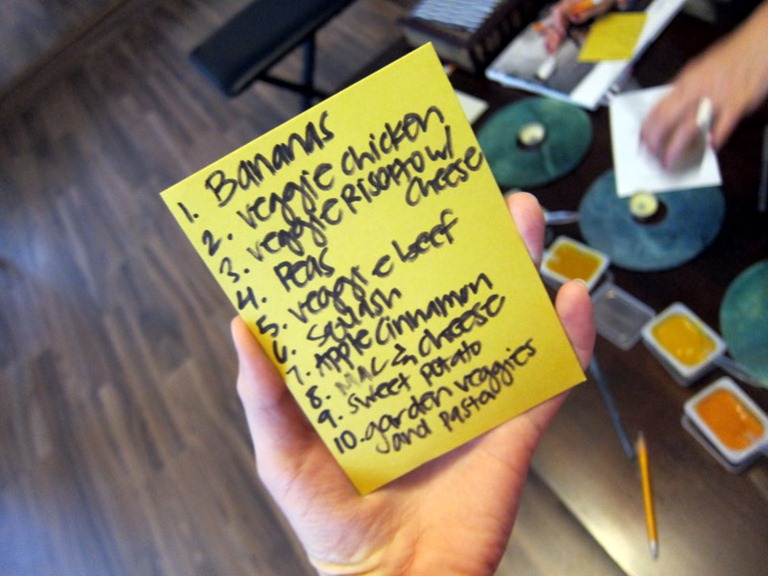 1. Bananas
2. veggie chicken
3. veggie Risotto w/
cheese
4. Peas
5. veggie beef
6. Squash
7. Apple Cinnamon
8. Mac & cheese
9. sweet potato
10. garden veggies
and pasta